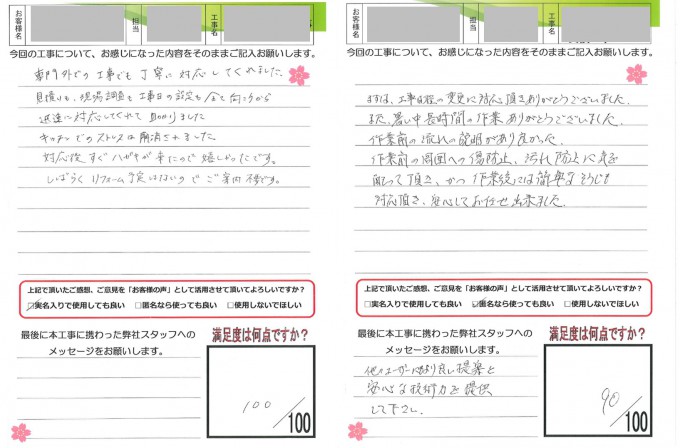 お客様名
担当
工事名
今回の工事について、お感じになった内容をそのままご記入お願いします。
専門外での工事でも丁寧に対応してくれました。
見積りも、現場調査も工事日の設定も全て向こうから
迅速に対応してくれて助かりました
キッチンでのストレスは解消されました
対応後すぐハガキが来たので嬉しかったです。
しばらくリフォーム予定はないのでご案内不要です。
上記で頂いたご感想、ご意見を「お客様の声」として活用させて頂いてよろしいですか?
☑実名入りで使用しても良い □匿名なら使っても良い □使用しないでほしい
最後に本工事に携わった弊社スタッフへの
メッセージをお願いします。
満足度は何点ですか?
100/100
お客様名
担当
工事名
今回の工事について、お感じになった内容をそのままご記入お願いします。
まずは、工事日程の変更に対応頂きありがとうございました。
また、暑い中長時間の作業ありがとうございました。
作業前の流れの説明があり良かった。
作業前の周囲への傷防止、汚れ防止に気を
配って頂き、かつ作業後には簡単なそうじも
対応頂き、安心してお任せ出来ました。
上記で頂いたご感想、ご意見を「お客様の声」として活用させて頂いてよろしいですか?
□実名入りで使用しても良い ☑匿名なら使っても良い □使用しないでほしい
最後に本工事に携わった弊社スタッフへの
メッセージをお願いします。
他のユーザーにもより良い提案と
安心な技術力を提供
して下さい。
満足度は何点ですか?
90/100